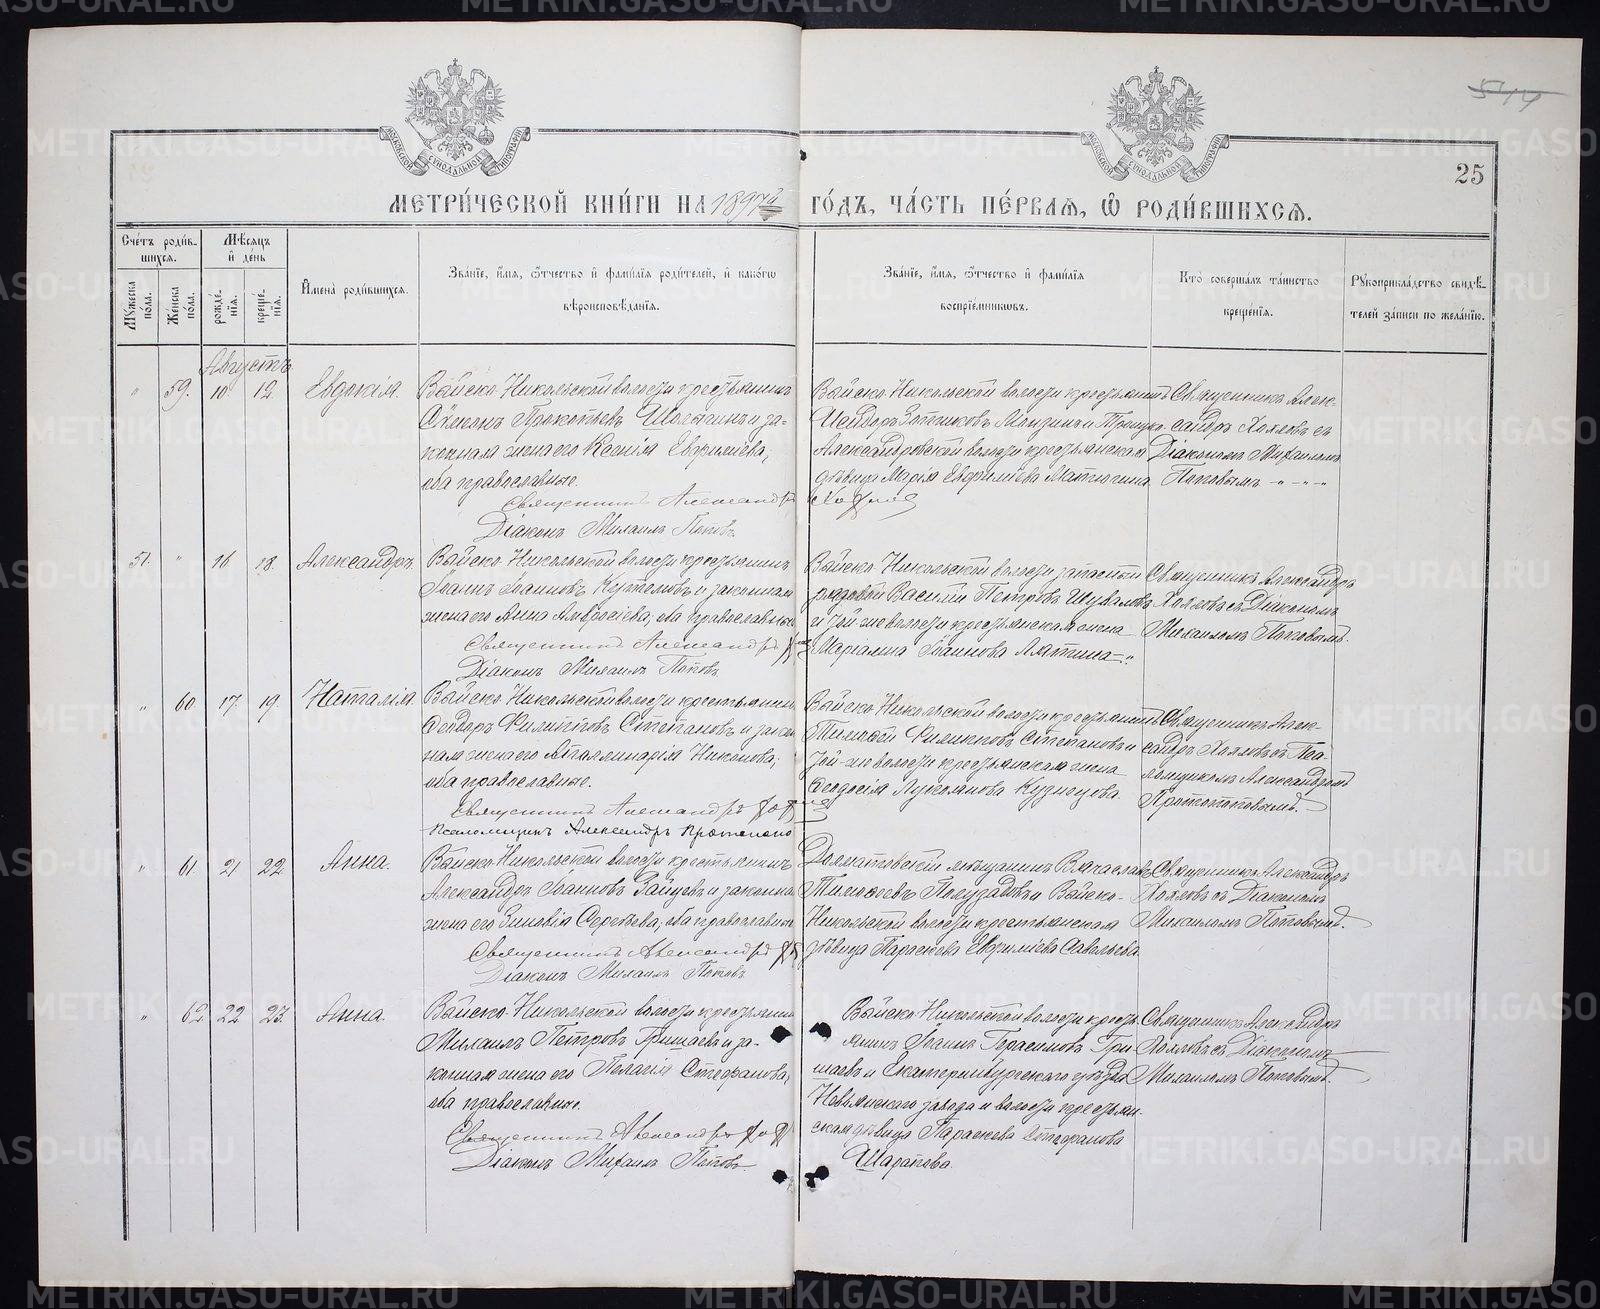 544
25
МЕТРИ́ЧЕСКОЙ КНИ́ГИ НА 1897й ГО́ДЪ, ЧА́СТЬ ПЕ́РВАЯ, Ѽ РОДИ́ВШИХСЯ.
Сче́тъ роди́в-
шихся.
Мꙋ́жеска по́ла.
Же́нска по́ла.
Мѣ́сяцъ
и҆ де́нь
рожде́-
нїя.
креще́-
нїя.
И҆мена̀ роди́вшихся.
Зва́нїе, и҆́мя, ѻ҆́тчество и҆ фами́лїя роди́телей, и҆ како́гѡ
вѣроисповѣ́данїя.
Зва́нїе, и҆́мя, ѻ҆́тчество и҆ фами́лїя
воспрїе́мникѡвъ.
Кто̀ соверша́лъ та́инство
креще́нїя.
Рꙋкоприкла́дство свидѣ́-
телей за́писи по жела́нїю.
Августъ
" 59. 10. 12 Евдокія.
Войско-Никольской волости крестьянинъ
Симеонъ Прокопьевъ и за-
конная жена его Ксенія Евфиміева,
оба православные.
Священникъ Александръ Хохловъ
Діаконъ Михаилъ Поповъ.
Никольской волости крестьянинъ
и
Александровской волости крестьянская
дѣвица Марія Евфиміева
Священникъ Алек-
сандръ Хохловъ съ
Діакономъ Михаиломъ
Поповымъ
51. " 16 18. Александръ.
Никольской волости крестьянинъ
Іоаннъ Іоанновъ и законная
жена его Анна Амвросіева, оба православные
Священникъ Александръ
Діаконъ Михаилъ Поповъ.
Никольской волости запасный
рядовой Василій Петровъ Шуваловъ
и той-же волости крестьянская жена
Іоаннова
Священникъ Александръ
Хохловъ съ Діакономъ
Михаиломъ Поповымъ.
" 60. 17. 19. Наталія.
Никольской волости крестьянинъ
Ѳеодоръ Филипповъ Степановъ и закон
ная жена его Аполлинарія Никонова,
оба православные.
Священникъ Александръ Хохловъ
Псаломщикъ Александръ Протопопо
Никольской волости крестьянинъ
Тимоѳей Филипповъ Степановъ и
той-же волости крестьянская жена
Ѳеодосія Лукоянова Кузнецова.
Священникъ Алек-
сандръ Хохловъ съ Пса-
ломщикомъ Александромъ
Протопоповымъ.
" 61. 21 22 Анна.
Никольской волости крестьянинъ
Александръ Іоанновъ Зайцевъ и законная
жена его Зиновія Сергѣева, оба православные
Священникъ Александръ
Діаконъ Михаилъ Поповъ
Долматовскій мѣщанинъ Вячеславъ
Тимоѳеевъ и
Никольской волости крестьянская
дѣвица Параскева Евфиміева Савельева.
Священникъ Александръ
Хохловъ съ Діакономъ
Михаиломъ Поповымъ.
" 62. 22 23. Анна.
Никольской волости крестьянинъ
Михаилъ Петровъ Гришаевъ и за-
конная жена его Пелагія Стефанова,
оба православные.
Священникъ Александръ
Діаконъ Михаилъ Поповъ.
Никольской волости кресть-
янинъ Іоаннъ Герасимовъ Гри-
шаевъ и Екатеринбургскаго уѣзда
Невьянскаго завода и волости крестьян-
ская дѣвица Параскева Стефанова
Шарапова.
Священникъ Александръ
Хохловъ съ Діакономъ
Михаиломъ Поповымъ.
METRIKI.GASO-URAL.RU